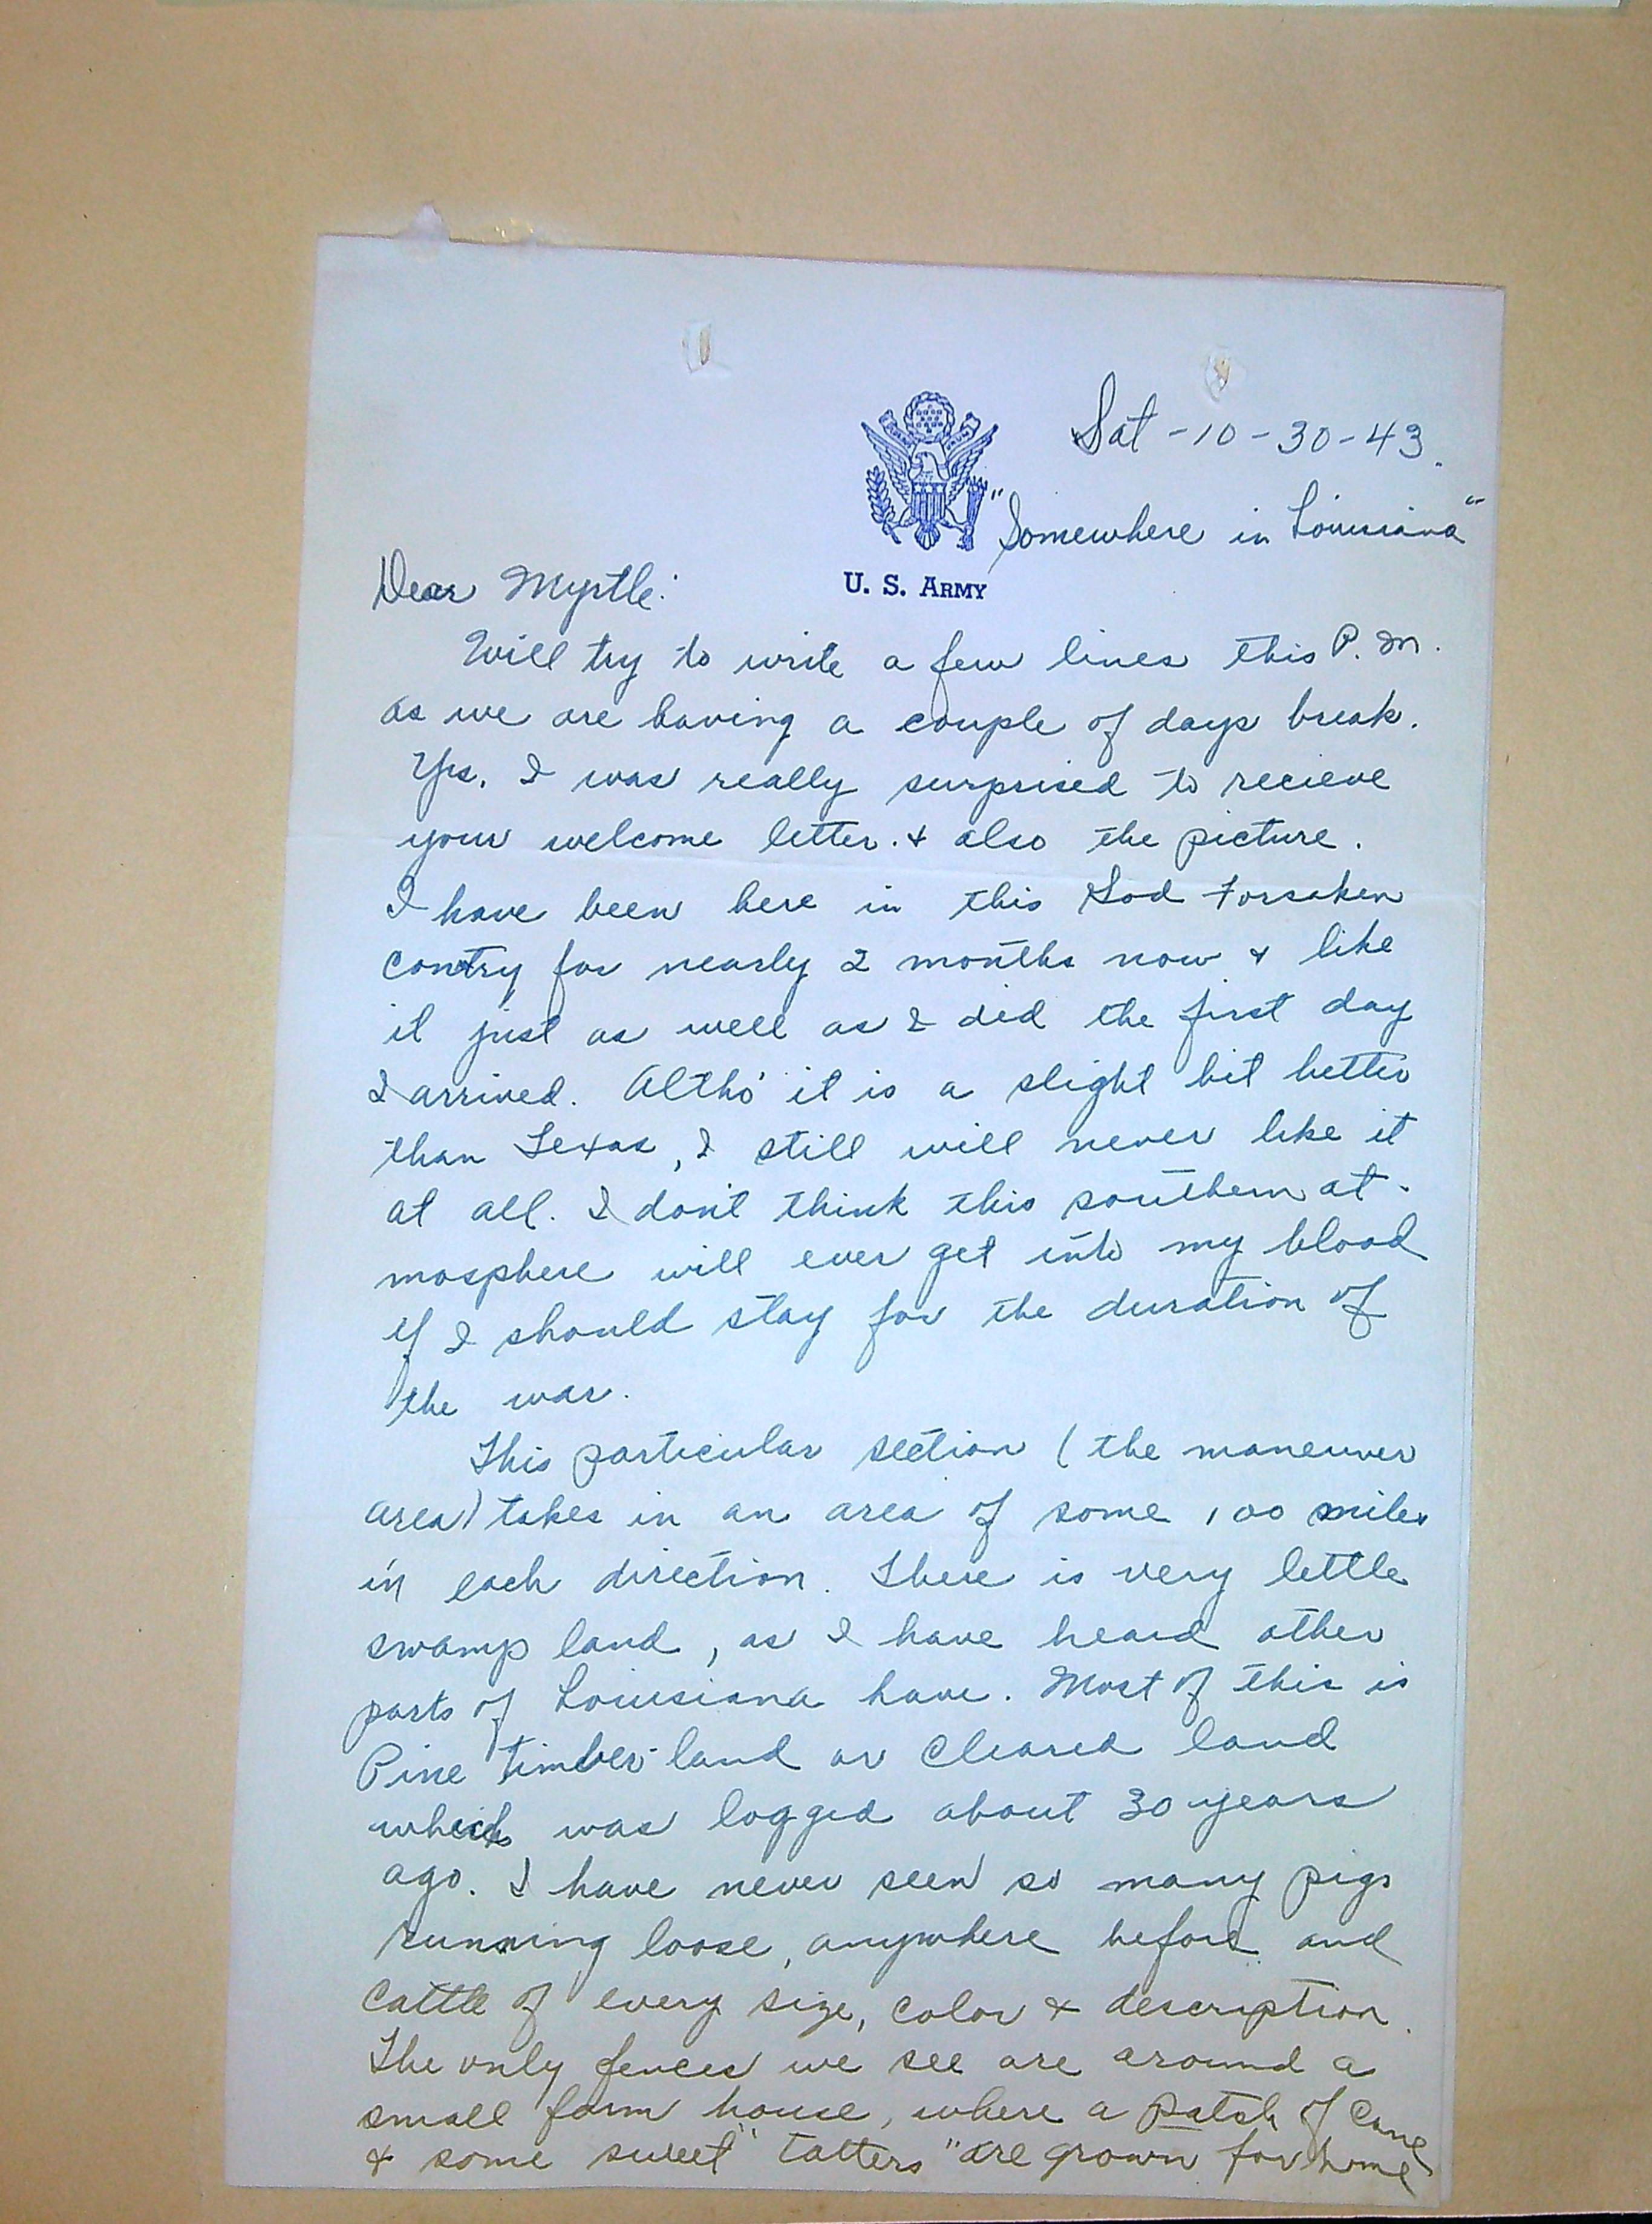 Sat - 10 - 30 - 43.
"Somewhere in Louisiana"
U. S. ARMY
Dear Myrtle:
Will try to write a few lines this P.M.
as we are having a couple of days break.
Yes, I was really surprised to recieve
your welcome letter. & also the picture.
I have been here in this God Forsaken
contry for nearly 2 months now & like
it just as well as I did the first day
I arrived. Altho' it is a slight bit better
than Texas, I still will never like it
at all. I don't think this southern at-
mosphere will ever get into my blood
if I should stay for the duration of
the war.
This particular section (the maneuver
area) takes in an area of some 100 miles
in each direction. There is very little
swamp land, as I have heard other
parts of Louisiana have. Most of this is
Pine timber land or cleared land
which was logged about 30 years
ago. I have never seen so many pigs
running loose, anywhere before and
cattle of every size, color & description.
The only fences we see are around a
small farm house, where a patch of cane
& some sweet "tatters" are grown for home